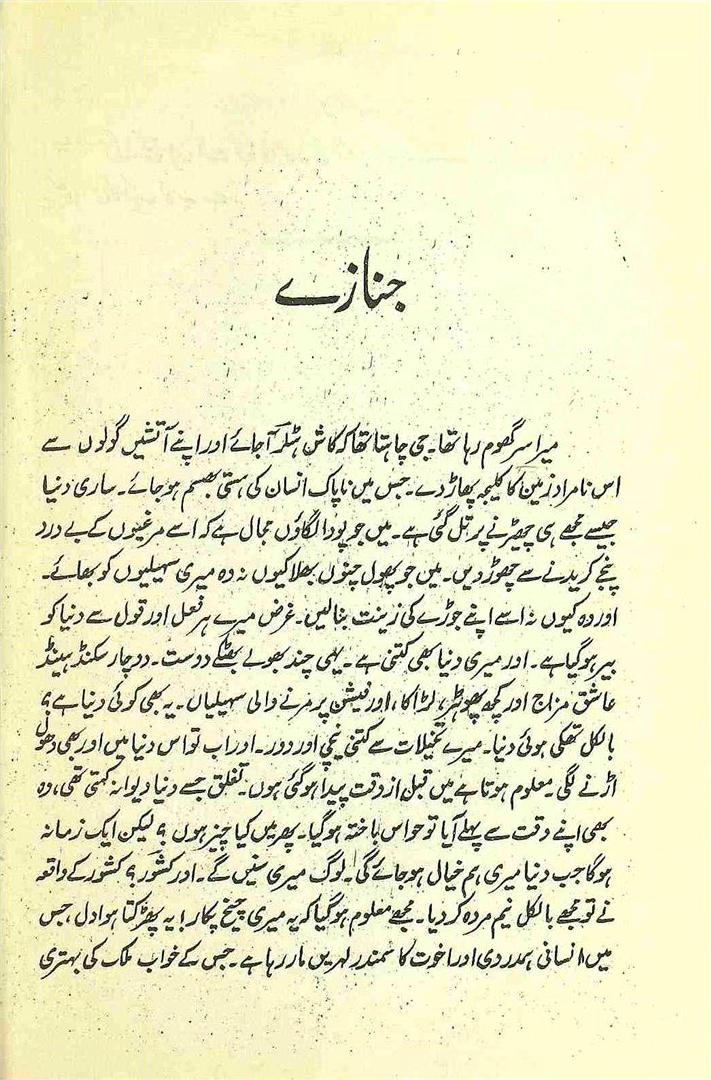 جنازے
میرا سر گھوم رہا تھا۔ جی چاہتا تھا کہ کاش ہٹلر آ جائے اور اپنے آتشیں گولوں سے
اس نامراد زمین کا کلیجہ پھاڑ دے۔ جس میں ناپاک انسان کی ہستی بھسم ہو جائے۔ ساری دنیا
جیسے مجھے ہی چھیڑنے پر تل گئی ہے۔ میں جو پودا لگاؤں مجال ہے کہ اسے مرغیوں کے بے درد
پنجے کریدنے سے چھوڑ دیں۔ میں جو پھول چنوں بھلا کیوں نہ وہ میری سہیلیوں کو بھائے۔
اور وہ کیوں نہ اسے اپنے جوڑے کی زینت بنا لیں۔ غرض میرے ہر فعل اور قول سے دنیا کو
بیر ہو گیا ہے۔ اور میری دنیا بھی کتنی ہے۔ یہی چند بھولے بھٹکے دوست۔ دو چار سکنڈ ہینڈ
عاشق مزاج اور کچھ پھوہڑ، لڑاکا، اور فیشن پر مرنے والی سہیلیاں۔ یہ بھی کوئی دنیا ہے؟
بالکل تھکی ہوئی دنیا۔ میرے تخیلات سے کتنی نیچی اور دور۔ اور اب تو اس دنیا میں اور بھی دھول
اڑنے لگی۔ معلوم ہوتا ہے میں قبل از وقت پیدا ہو گئی ہوں۔ تغلق جسے دنیا دیوانہ کہتی تھی، وہ
بھی اپنے وقت سے پہلے آیا تو حواس باختہ ہو گیا۔ پھر میں کیا چیز ہوں؟ لیکن ایک زمانہ
ہو گا جب دنیا میری ہم خیال ہو جائے گی۔ لوگ میری سنیں گے۔ اور کشور؟ کشور کے واقعہ
نے تو مجھے بالکل نیم مردہ کر دیا۔ مجھے معلوم ہو گیا کہ یہ میری چیخ پکار! یہ پھڑکتا ہوا دل، جس
میں انسانی ہمدردی اور اخوت کا سمندر لہریں مار رہا ہے۔ جس کے خواب ملک کی بہتری